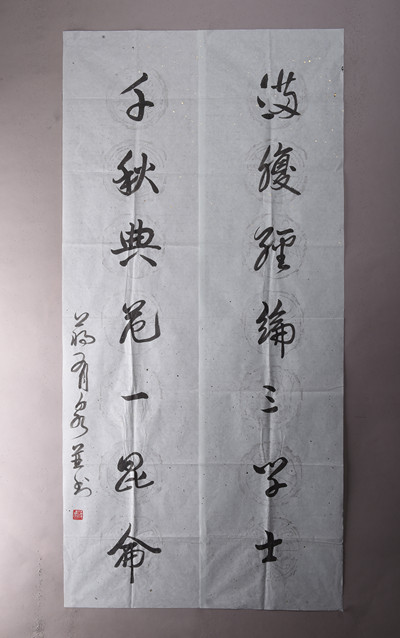 满腹经纶三学士
千秋典范一昆仑
蒋有泉並书